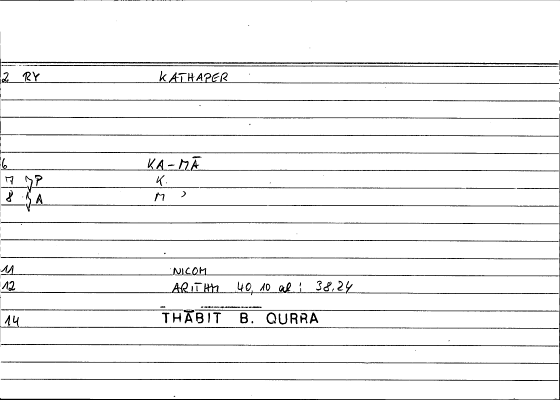 2 RY KATHAPER
6 KA-MĀ
7 }P K.
8 }A M ʾ
11 NICOM
12 ARITHM 40,10 al: 38.24
14 THĀBIT B. QURRA